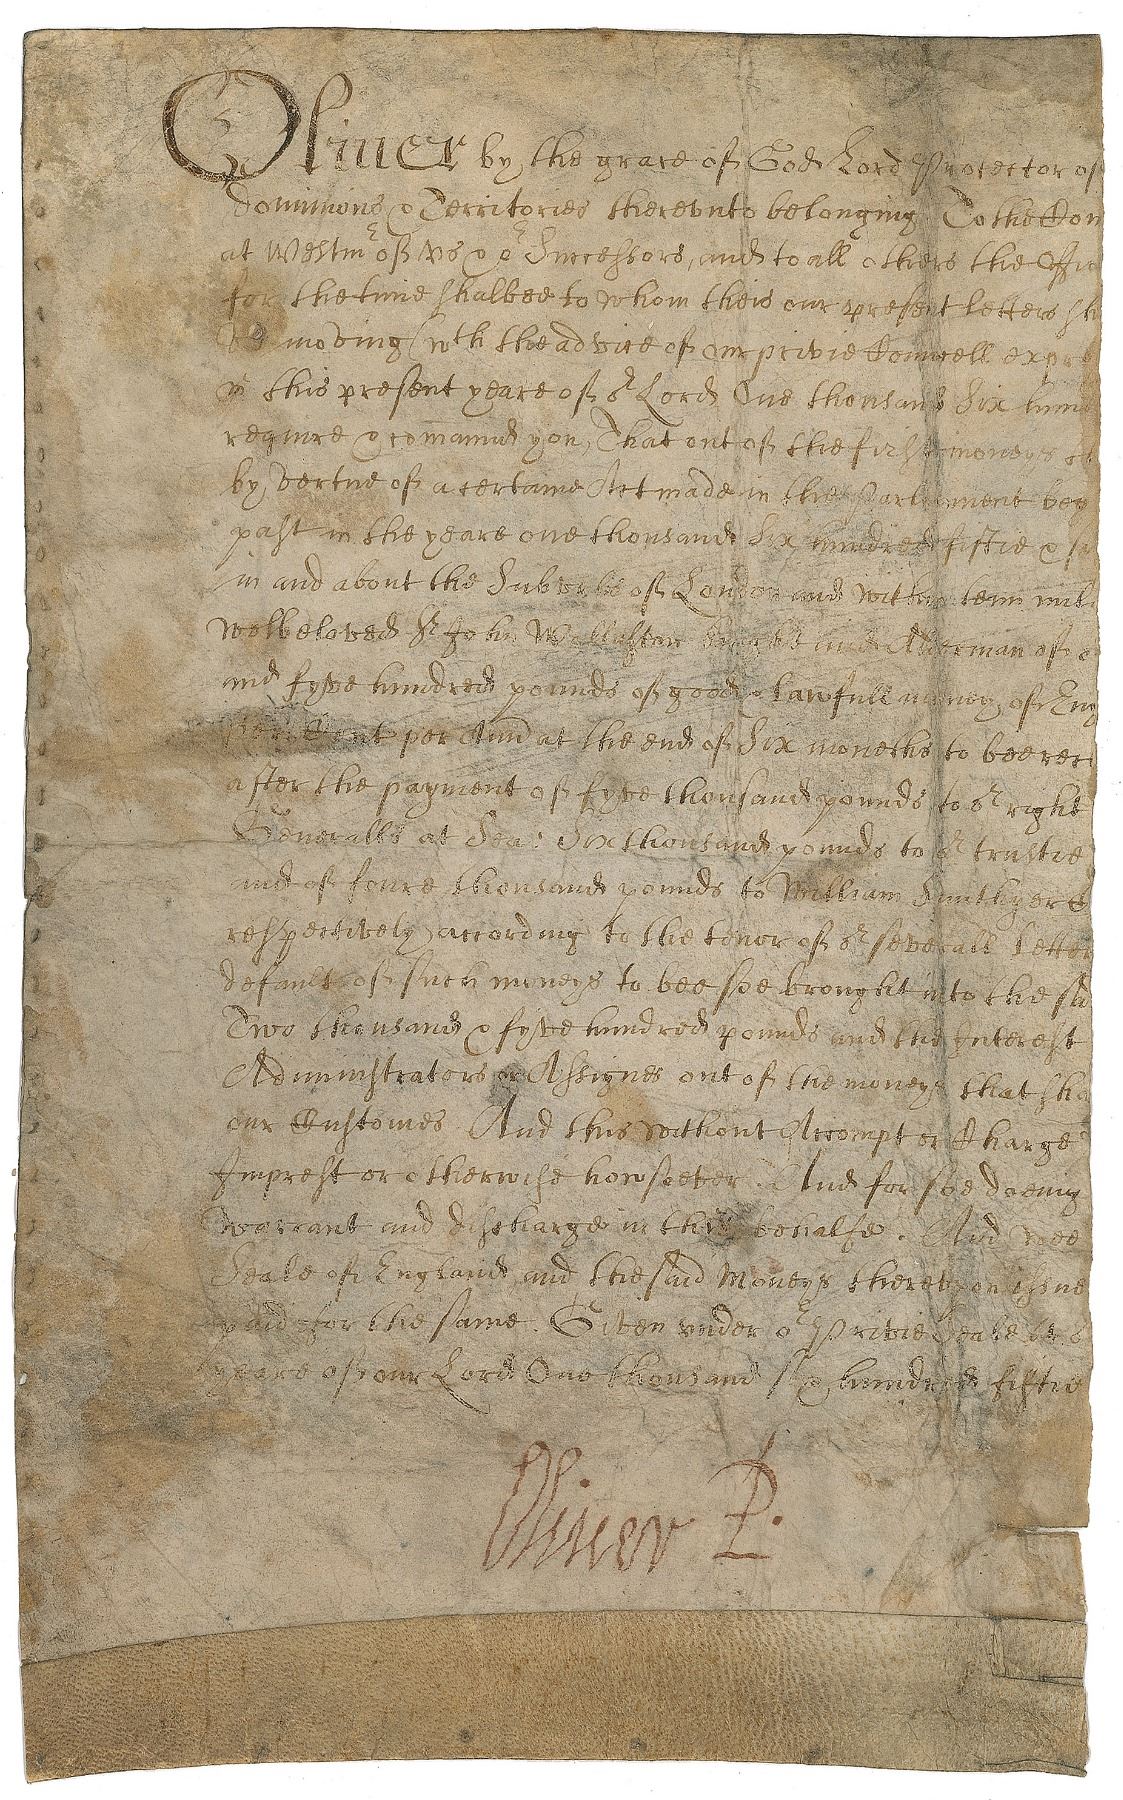 Oliver by the grace of God Lord Protector of
dominions & Territories therevnto belonging To the Com
at Westmr of vs & or Successors, and to all others the Offic
for the time shalbee to whom theis our present letters sh
moving (wth the advice of our privie Councell expr
in this present yeare of or Lord One thousand Six hund
require & comannd you, That out of the first moneys
by vertue of a certaine Act made in the Parliament beg
past in the yeare one thousand Six hundred fiftie & s
in and about the Suburbs of London and within tenn mil
welbeloved Sr John Wollaston Knight and Alderman of
and fyve hundred pounds of good & lawfull money of Eng
per Cent per Ann at the end of Six moneths to bee rec
after the payment of fyve thousand pounds to or right
Generalls at Sea: Six thousand pounds to or trustie
and of foure thousand pounds to William
respectively according to the tenor of or severall letter
default of such moneys to bee soe brought into the sa
Two thousand & fyve hundred pounds and the Interest
Administrators or Assignes out of the moneys that sha
our Customes And this without Accompt or Charge
Imprest or otherwise howsoever. And for soe doeing
warrant and discharge in this behalfe. And wee
Seale of England and the said Moneys therevpon issue
paid for the same. Given vnder or Privie Seale at
yeare of our Lord One thousand six hundred fiftie
Oliver P.